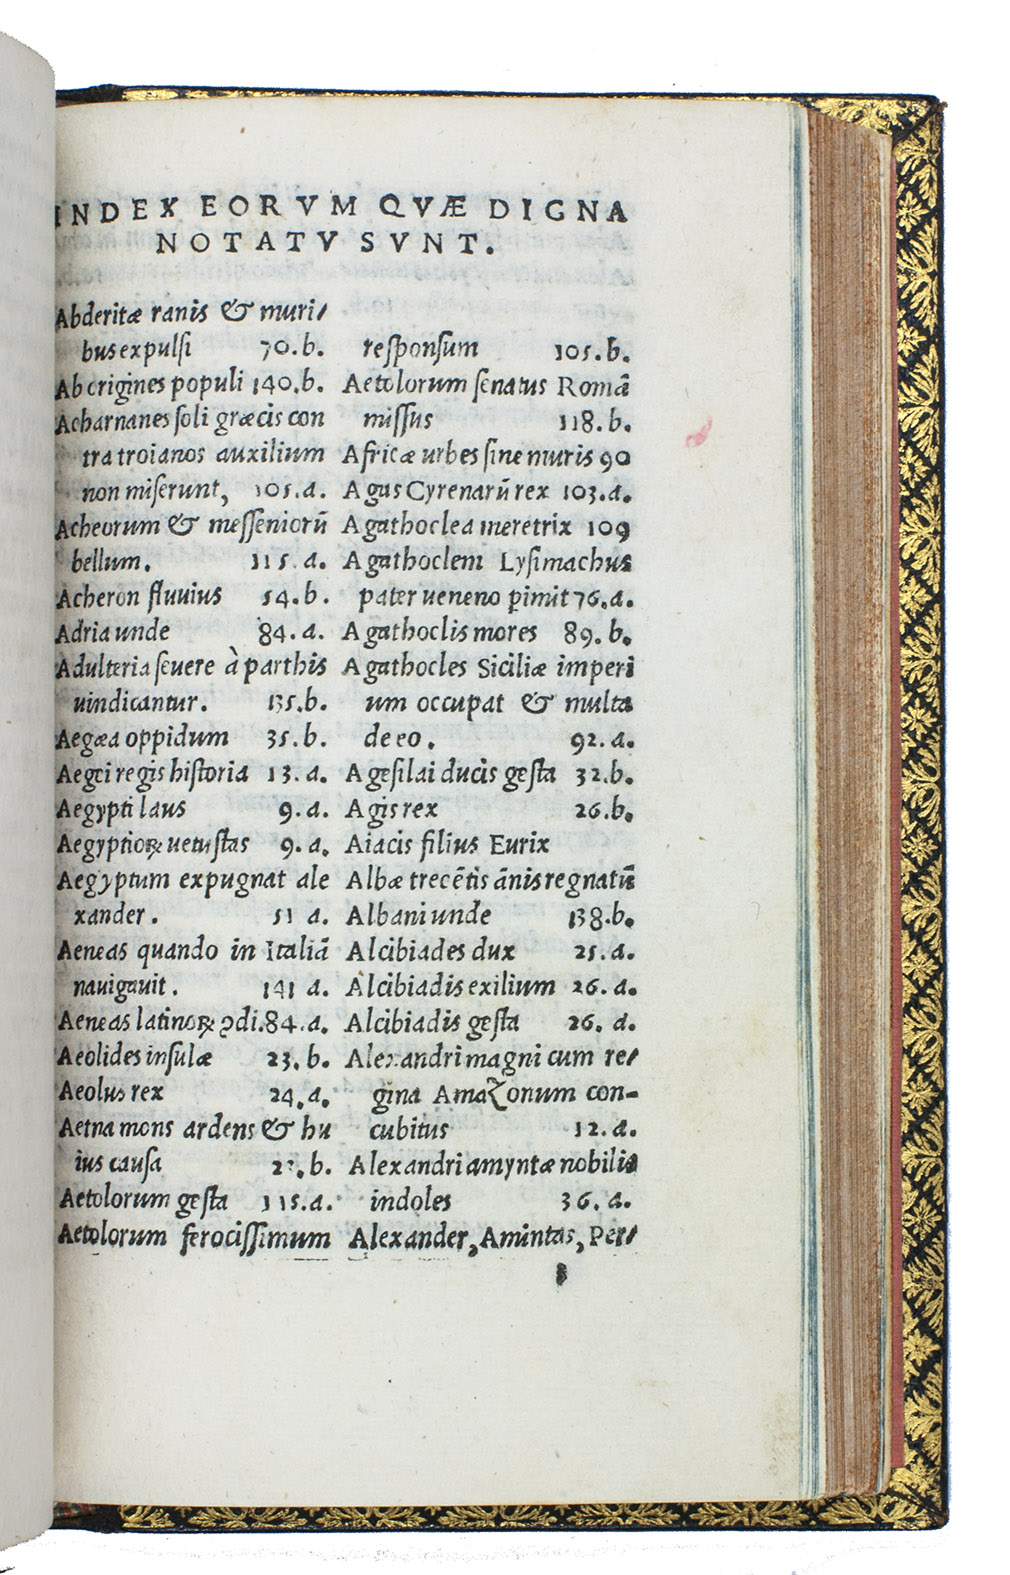 INDEX EORVM QVÆ DIGNA
NOTATV SVNT.
Abderitæ ranis & muri/
bus expulsi 70.b.
Aborigines populi 140.b.
Acharnanes soli græcis con
tra troianos auxilium
non miserunt, 105.a.
Acheorum & messeniorũ
bellum. 115.a.
Acheron fluuius 54.b.
Adria unde 84.a.
Adulteria seuere à parthis
uindicantur. 135.b.
Aegæa oppidum 35.b.
Aegei regis historia 13.a.
Aegypti laus 9.a.
Aegyptioꝝ uetustas 9.a.
Aegyptum expugnat ale
xander. 51 a.
Aeneas quando in Italiã
nauigauit. 141 a.
Aeneas latinoꝝ ꝯdi. 84.a.
Aeolides insulæ 23.b.
Aeolus rex 24.a.
Aetna mons ardens & hu
ius causa b.
Aetolorum gesta 115.a.
Aetolorum ferocissimum
responsum 105.b.
Aetolorum senatus Romã
missus 118.b.
Africæ urbes sine muris 90
Agas Cyrenarũ rex 103.a.
Agathoclea meretrix 109
Agathoclem Lysimachus
pater ueneno ꝑimit 76.a.
Agathoclis mores 89.b.
Agathocles Siciliæ imperi
um occupat & multa
de eo. 92.a.
Agesilai ducis gesta 32.b.
Agis rex 26.b.
Aiacis filius Eurix
Albæ trecẽtis ãnis regnatũ
Albani unde 138.b.
Alcibiades dux 25.a.
Alcibiadis exilium 26.a.
Alcibiadis gesta 26.a.
Alexandri magni cum re/
gina Amazonum con-
cubitus 12.a.
Alexandri amyntæ nobilis
indoles 36.a.
Alexander, Amintas, Per/
s